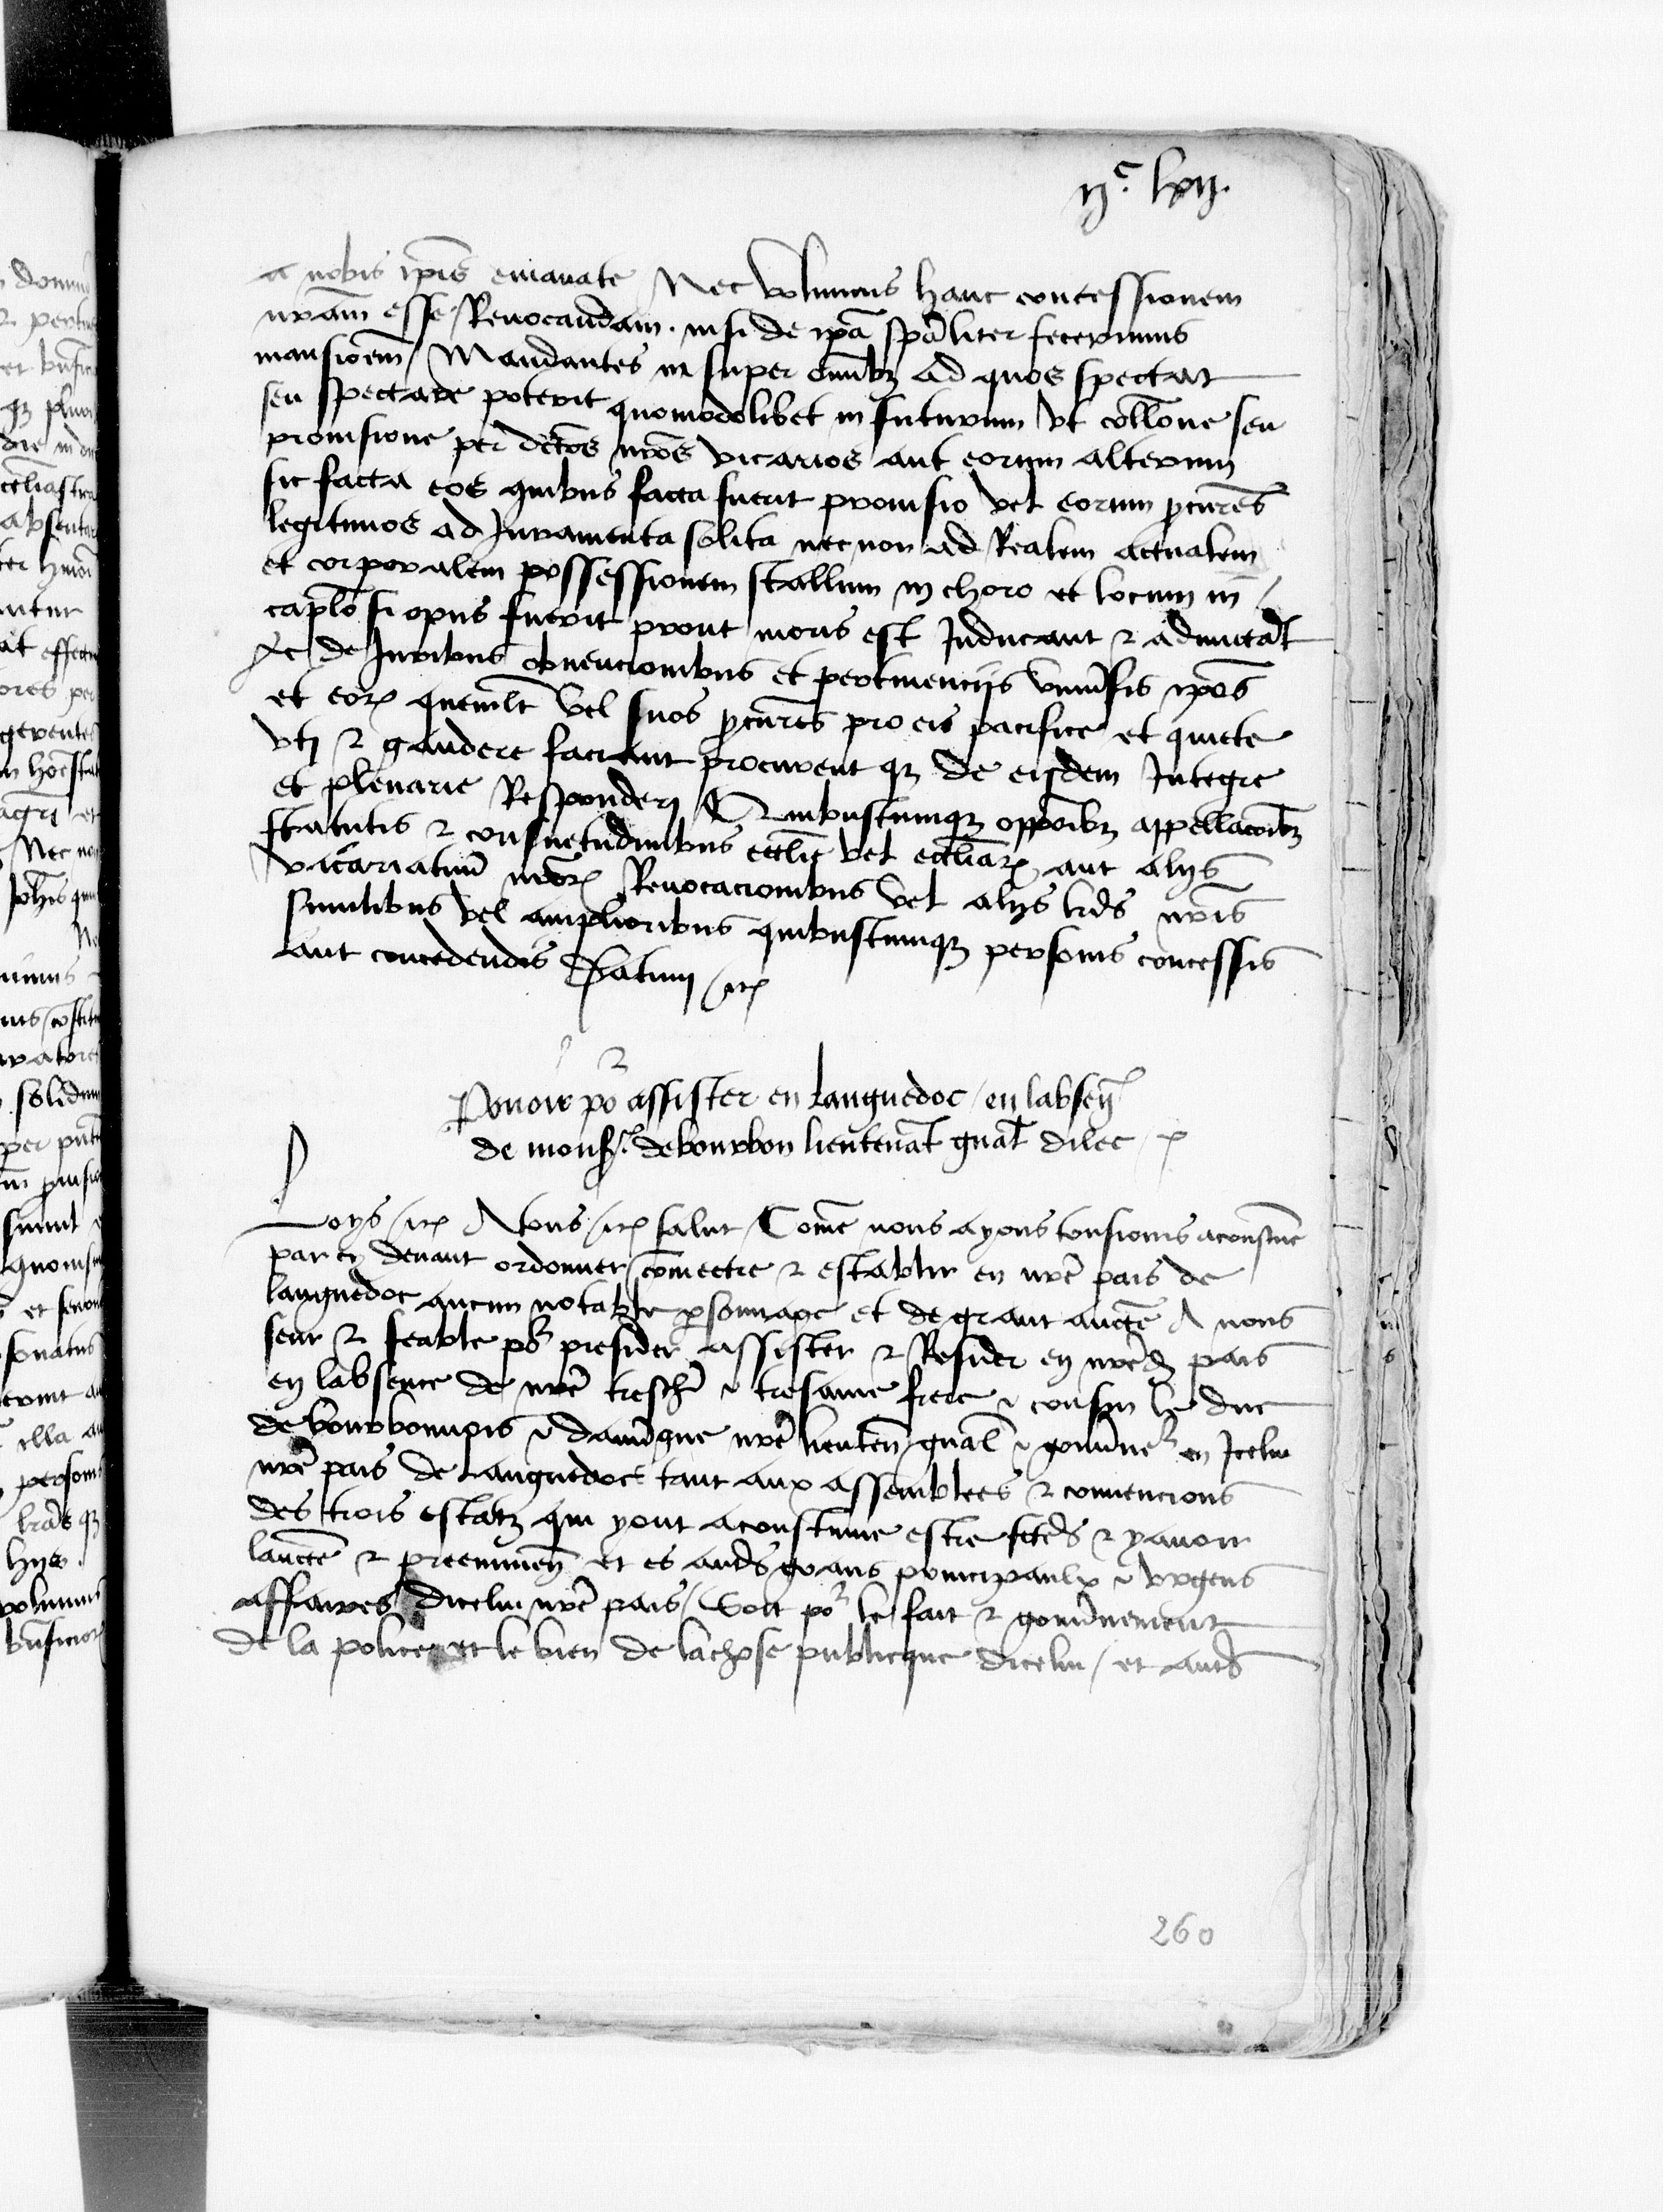 ijc. lxij.
a nobis ip̄is emanate Nec volumus hanc concessionem
nr̄am esse Reuocandam. nisi de ip̄a sp̄aliter fecerimus
mansionem / Mandantes in super om̄ibꝫ ad quos spectat
seu spectare poterit quomodolibet in futurum vt coll̄one seu
prouisione per dc̄os nr̄os vicarios aut eorum alterum
sic facta eos quibus facta fuerit prouisio vel eorum ꝓcur̄es
legitimos ad Juramenta solita nec non ad Realem actualem
et corporalem possessionem stallum in choro et locum in
cap̄lo si opus fuerit prout moris est Inducant ⁊ admictāt
Ac de Juribus obuencionibus et pertinencijs vniu̇sis ip̄os
et eoꝝ quemlt̄ vel suos ꝓcur̄es pro eis pacifice et quiete
vtj ⁊ gaudere faciant procurent qꝫ de eisdem Integre
et plenarie Responderj Quibuscumqꝫ opp̄oibꝫ appellac̄oibꝫ
statutis ⁊ consuetudinibus eccl̄ie vel eccl̄iaꝝ aut alijs
vicariatuū nr̄oꝝ Reuocacionibus vel alijs l̄rīs nr̄is
similibus vel amplioribus quibuscumqꝫ personis concessis
aut concedendis Datum / etꝝ
Pouoir po᷑ assister en Languedoc / en labsen̄
de mons᷑. de bourbon lieutenāt gn̄al dilec
Loys / etꝝ A tous / etꝝ salut / Com̄e nous ayons tousiours acoustume
par cy deuant ordonner / com̄ectre ⁊ establir en nr̄e pais de
languedoc aucun notable ꝑsonnage et de grant auct̄e A nous
seur ⁊ feable po᷑ presider assister ⁊ Resider en nr̄ed pais
en labsence de nr̄e trescher ⁊ tresame frere ⁊ cousin le duc
de bourbonnois ⁊ dauu̇gne nr̄e lieuten̄ gn̄al ⁊ gouu̇ne᷑ en Icelui
nr̄e pais de Languedoc tant aux assemblees ⁊ conuencions
des trois estatz qui y ont acoustume estre fctes ⁊ y auoir
lauct̄e ⁊ preeminen̄ et es aut̄s grans principaulx ⁊ vrgens
affaires dicelui nr̄e pais / Soit po᷑ le fait ⁊ gouu̇nement
de la police et le bien de la chose publicque dicelui / et aut̄s
260